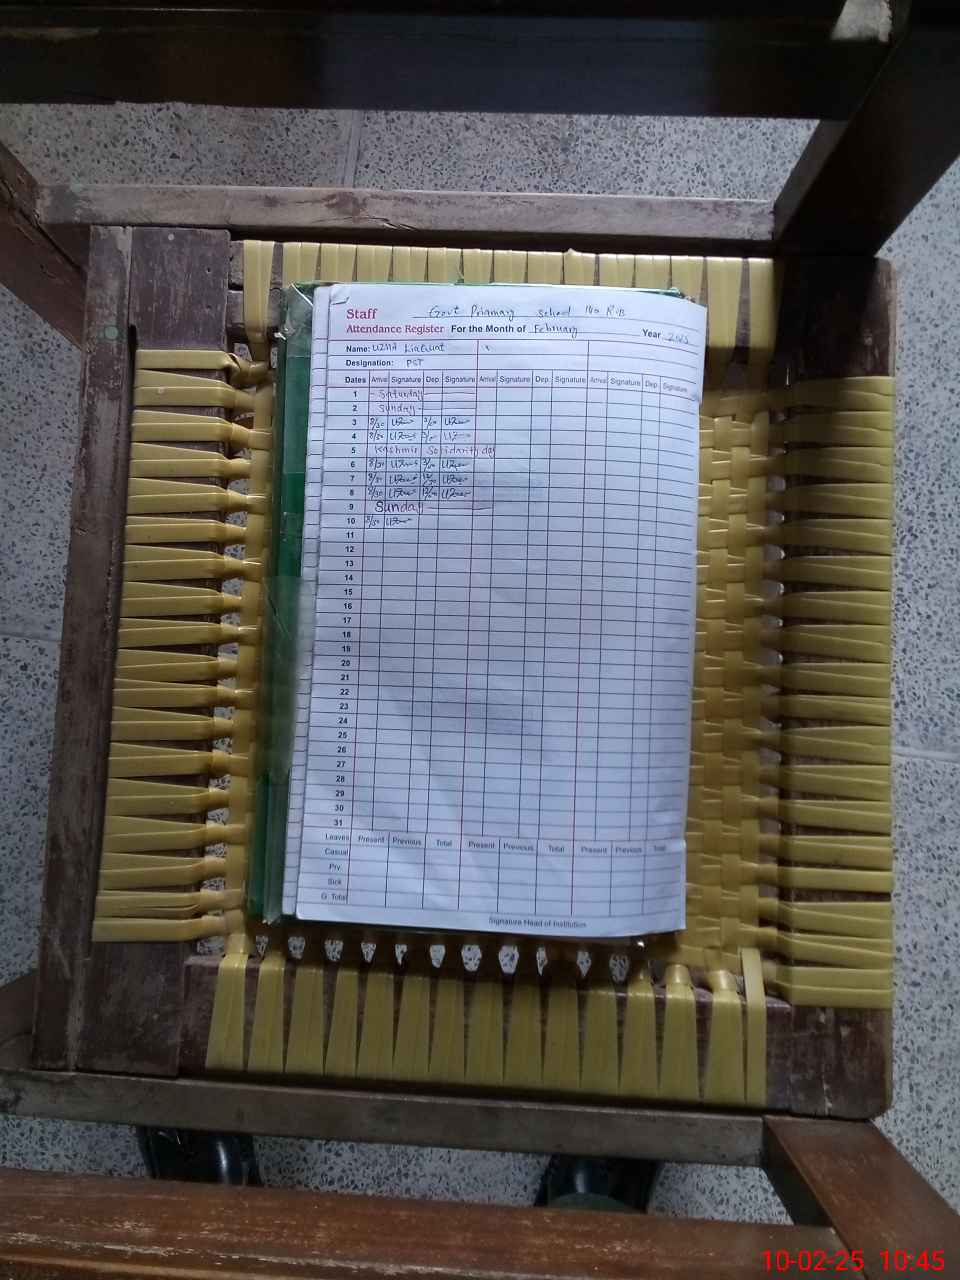 Staff Govt Primary School 140 R.B
Attendance Register For the Month of February Year 2025
Name: Uzma Liaquat
Designation: PST
Dates Arrival Signature Dep. Signature Arrival Signature Dep. Signature Arrival Signature Dep. Signature
1 Saturday
2 Sunday
3 8/30
4 8/30
5 Kashmir Solidarity day
6 8/30
7 8/30
8 8/30
9 Sunday
10 8/30
11
12
13
14
15
16
17
18
19
20
21
22
23
24
25
26
27
28
29
30
31
Leaves Present Previous Total Present Previous Total Present Previous Total
Casual
Prv.
Sick
G. Total
Signature Head of Institution
10-02-25 10:45